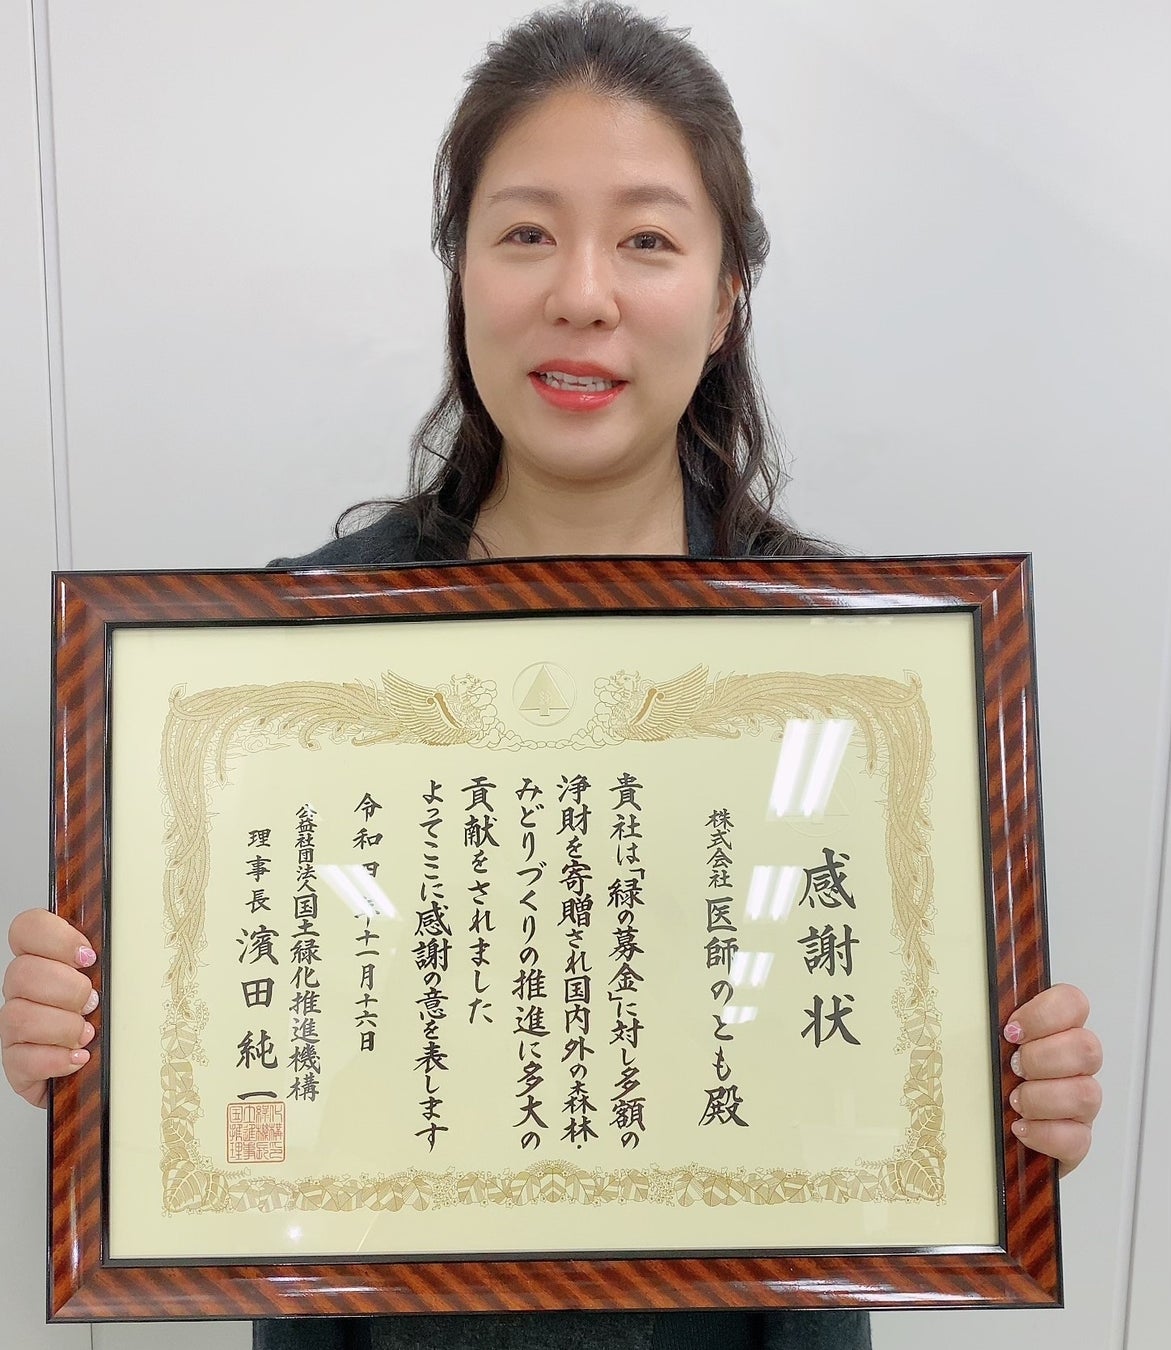 感謝状
株式会社医師のとも殿
貴社は「緑の募金」に対し多額の
浄財を寄贈され国内外の森林・
みどりづくりの推進に多大の
貢献をされました
よってここに感謝の意を表します
令和四年十一月十六日
公益社団法人国土緑化推進機構
理事長 濱田純一